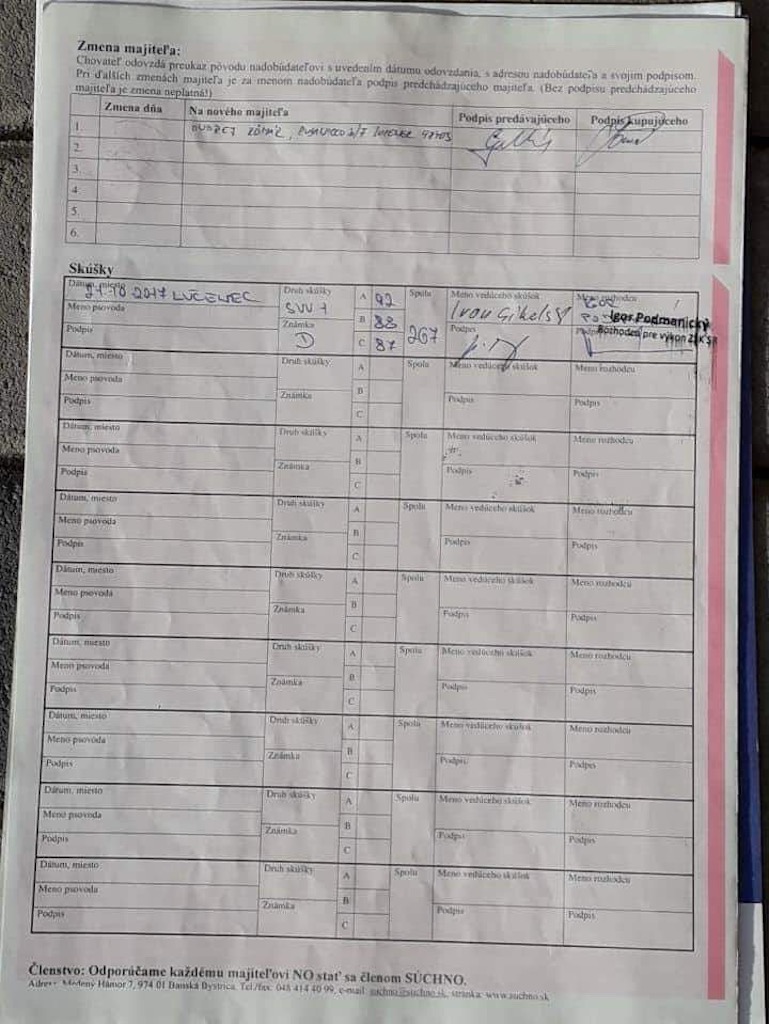 Zmena majiteľa:
Chovateľ odovzdá preukaz pôvodu nadobúdateľovi s uvedením dátumu odovzdania, s adresou nadobúdateľa a svojim podpisom.
Pri ďalších zmenách majiteľa je za menom nadobúdateľa podpis predchádzajúceho majiteľa. (Bez podpisu predchádzajúceho
majiteľa je zmena neplatná!)
Zmena dňa Na nového majiteľa Podpis predávajúceho Podpis kupujúceho
1.
2.
3.
4.
5.
6.
Skúšky
Dátum, miesto 21.10 2017 LUČENEC Druh skúšky SVV 1 A 92 Spolu 267 Meno vedúceho skúšok Ivan Meno rozhodcu
Meno psovoda Známka B 88 Igor Podmanický
Podpis C 87 Podpis Rozhodca pre výkon ZŠK SR
Dátum, miesto Druh skúšky A Spolu Meno vedúceho skúšok Meno rozhodcu
Meno psovoda Známka B
Podpis C Podpis Podpis
Dátum, miesto Druh skúšky A Spolu Meno vedúceho skúšok Meno rozhodcu
Meno psovoda Známka B
Podpis C Podpis Podpis
Dátum, miesto Druh skúšky A Spolu Meno vedúceho skúšok Meno rozhodcu
Meno psovoda Známka B
Podpis C Podpis Podpis
Dátum, miesto Druh skúšky A Spolu Meno vedúceho skúšok Meno rozhodcu
Meno psovoda Známka B
Podpis C Podpis Podpis
Dátum, miesto Druh skúšky A Spolu Meno vedúceho skúšok Meno rozhodcu
Meno psovoda Známka B
Podpis C Podpis Podpis
Dátum, miesto Druh skúšky A Spolu Meno vedúceho skúšok Meno rozhodcu
Meno psovoda Známka B
Podpis C Podpis Podpis
Dátum, miesto Druh skúšky A Spolu Meno vedúceho skúšok Meno rozhodcu
Meno psovoda Známka B
Podpis C Podpis Podpis
Dátum, miesto Druh skúšky A Spolu Meno vedúceho skúšok Meno rozhodcu
Meno psovoda Známka B
Podpis C Podpis Podpis
Členstvo: Odporúčame každému majiteľovi NO stať sa členom SÚCHNO.
Adresa: Medený Hámor 7, 974 01 Banská Bystrica. Tel./fax: 048 414 40 99, e-mail: suchno@suchno.sk, stránka: www.suchno.sk